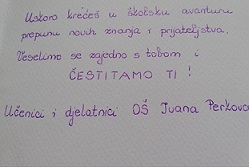 Uskoro krećeš u školsku avanturu
prepunu novih znanja i prijateljstva.
Veselimo se zajedno s tobom i
ČESTITAMO TI !
Učenici i djelatnici OŠ Ivana Perkovca